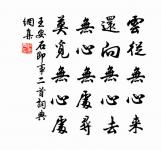 雲從無心來
還向無心去
無心無處尋
莫覓無心處
王安石即事二首詞典
網集